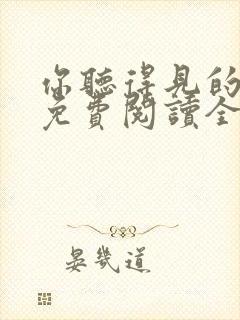 你聽得見的
免費閱讀全
晏幾道